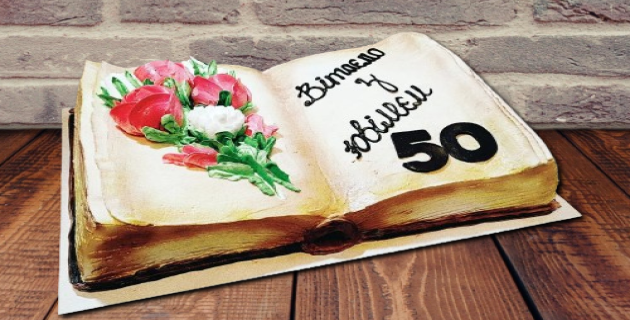 Вітаємо
з
Ювілеєм
50